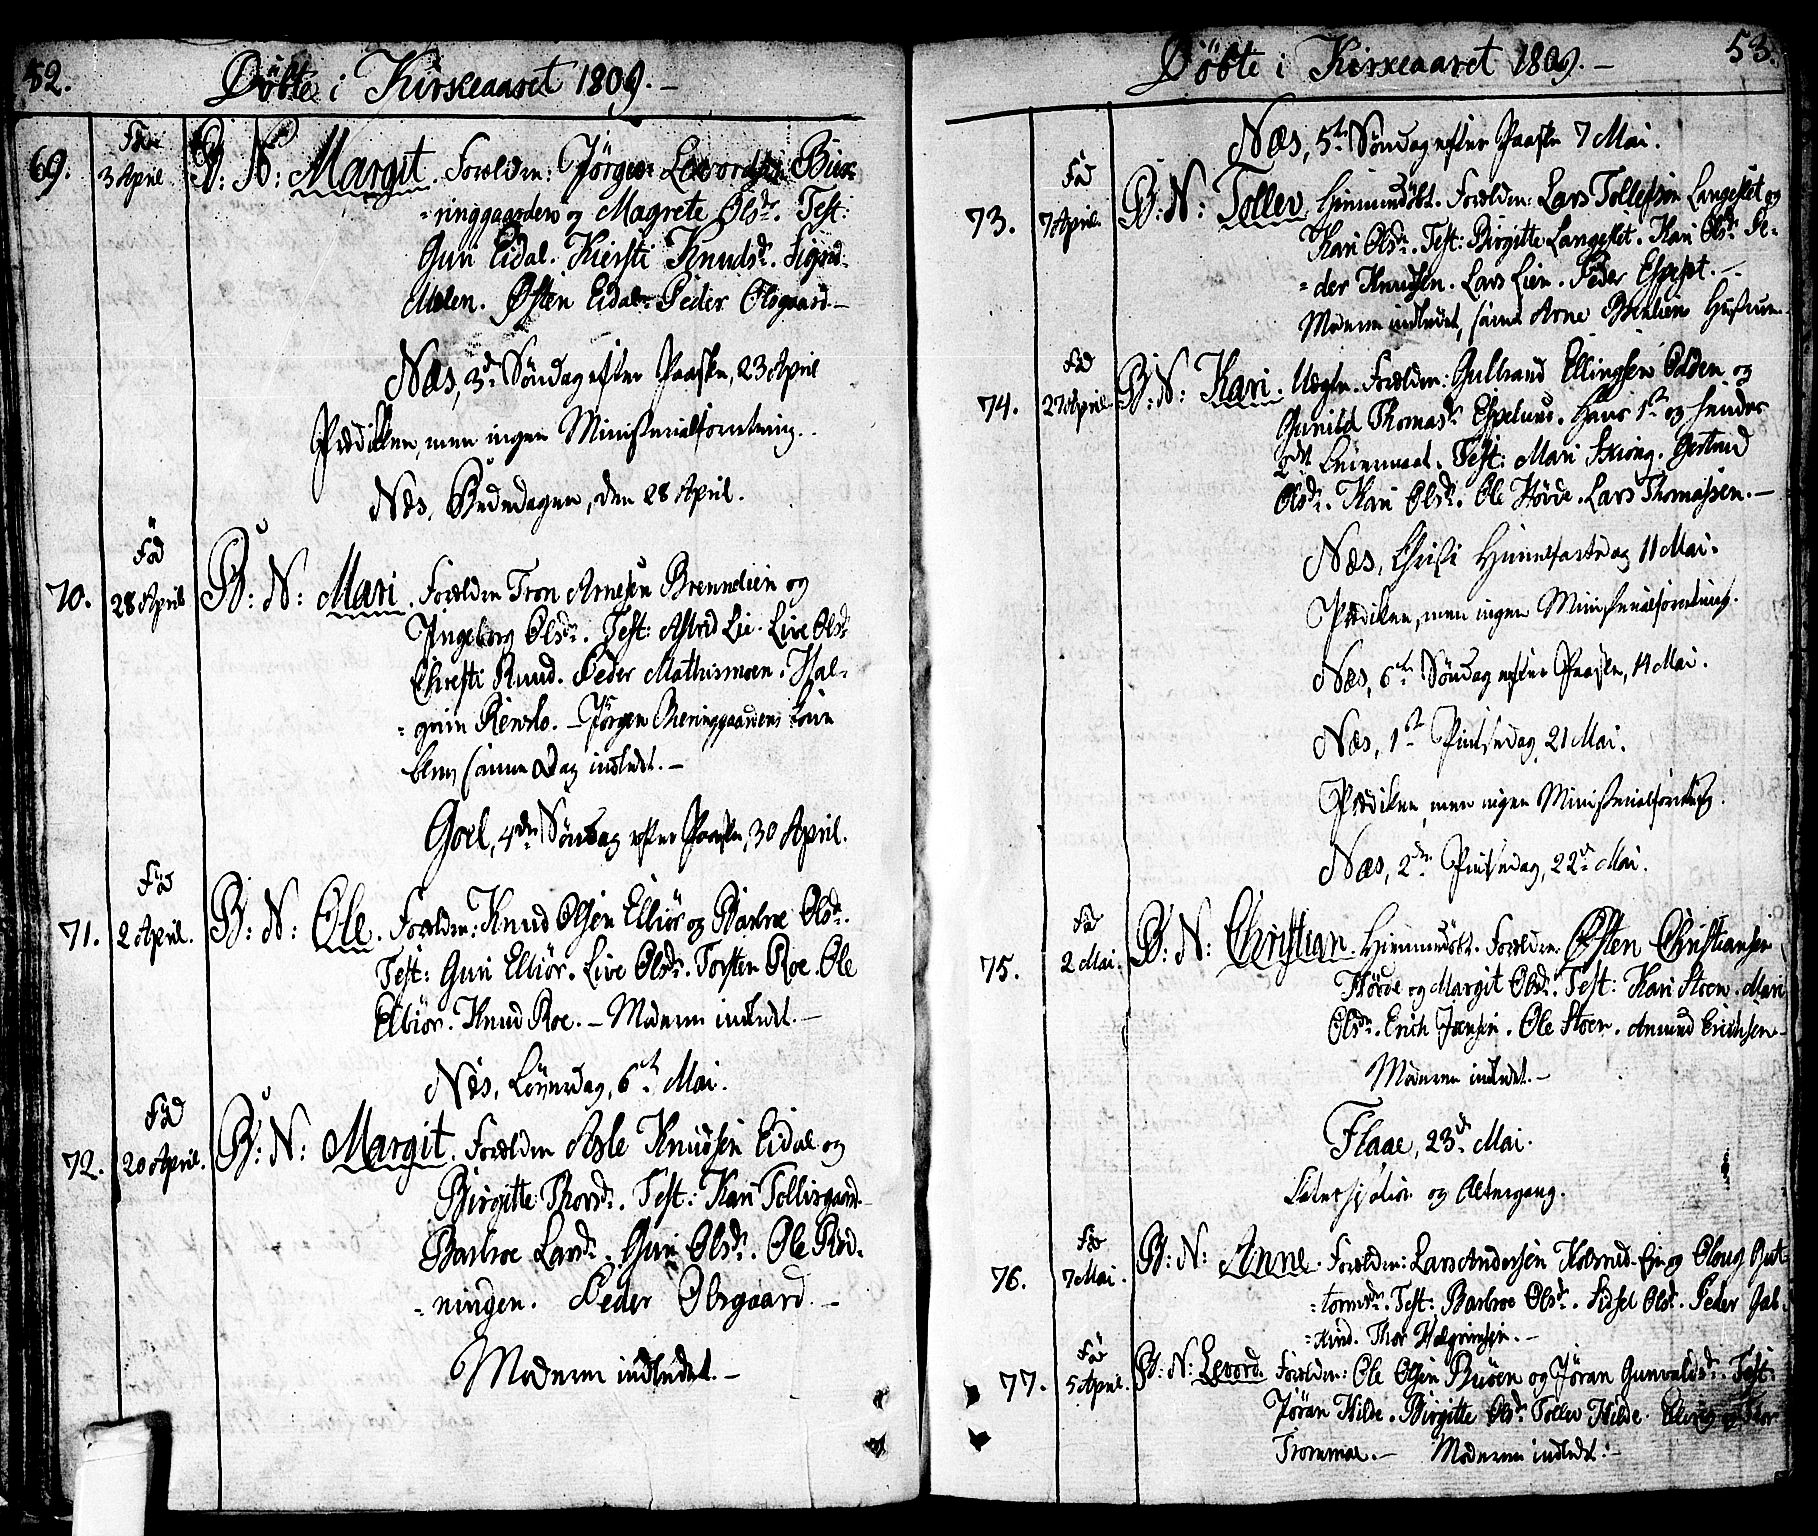 52.
Döbte i Kirkeaaret 1809.–
69.
Född
3 April
B: N: Margit. Forældre: Jörgen Levordsen Bie-
-ringgaarden og Magrete Olsdr. Test:
Guri Eidal. Kiersti Knudsdr. Sigrid
Melen. Østen Eidal. Peder Olsgaard.–
Næs, 3de Søndag efter Paaske, 23 April
Prædiken, men ingen Ministerialforretning.
Næs, Bededagen, den 28 April.
70.
Föd
28 April
B: N: Mari. Forældre Tron Arnesen Brenneliein og
Ingeborg Olsdr. Test: Astrid Lie. Live Olsdr
Chresti Ruud. Peder Mathismoen. Hal-
-grim Renslo. – Jørgen Bieringgaardens Kone
blev samme Dag indledet.–
Goel, 4de Søndag efter Paaske, 30 April.
71.
Föd
2 April.
B: N: Ole. Forældre: Knud Olsen Elliör og Barbroe Olsdr.
Test: Guri Elliör. Live Olsdr. Torsten Roe. Ole
Elliör. Knud Roe. – Moderen indledet.–
Næs, Løverdag, 6te Mai.
72.
Föd
20 April.
B: N: Margit. Forældre Asle Knudsen Eidal og
Birgitte Thorsdr. Test: Kari Tollisgaard.
Barbroe Larsdr. Guri Olsdr. Ole Rød-
-ningen. Peder Olsgaard.–
Moderen indledet.–
Döbte i Kirkeaaret 1809.–
53.
Næs, 5te Søndag efter Paaske 7 Mai.
73.
Föd
7 April.
B: N: Tollev. Hiemmedöbt. Forældre: Lars Tollefsen Langeslet og
Kari Olsdr. Test: Birgitte Langeslet. Kari Olsdr. Pe-
-der Knudsen. Lars Lien. Peder Espeset.–
Moderen indledet, samt Arne Hustrue.
74.
Föd
27 April.
B: N: Kari. Uægte. Forældre: Gulbrand Ellingsen Odden og
Gunild Thomasdr Espelund. Hans 1te og hendes
2det Leiermaal. Test: Mari Gertrud
Olsdr. Kari Olsdr. Ole Hörde. Lars Thomassen.–
Næs, Christi Himmelfartsdag 11 Mai.
Prædiken, men ingen Ministerialforretning.
Næs, 6te Søndag efter Paaske, 14 Mai.
Næs, 1te Pintsedag, 21 Mai.
Prædiken, men ingen Ministerialforretning.
Næs, 2den Pintsedag, 22de Mai.
75.
Föd
2 Mai.
B: N: Christian. Hiemmedöbt. Forældre: Østen Christiansen
Hörde og Margit Olsdr. Test: Kari Stoen. Mari
Olsdr. Erich Joensen. Ole Stoen. Amund Erichsen.–
Moderen indledet.–
Flaae, 23de Mai.
og Altergang.
76.
Föd
7 Mai.
B: N: Anne. Forældre: Lars Andersen og Olaug Gut-
-tormsdr. Test: Barbroe Olsdr. Sidsel Olsdr. Peder Gul-
Thor Halgrimsen.–
77.
Föd
5 April.
B: N: Levord. Forældre: Ole Olsen Buöen og Jöran Gunvaldsdr. Test:
Jöran Hilde. Birgitte Olsdr. Tollev Hilde. Elling og Thor
Trommal.– Moderen indledet.–